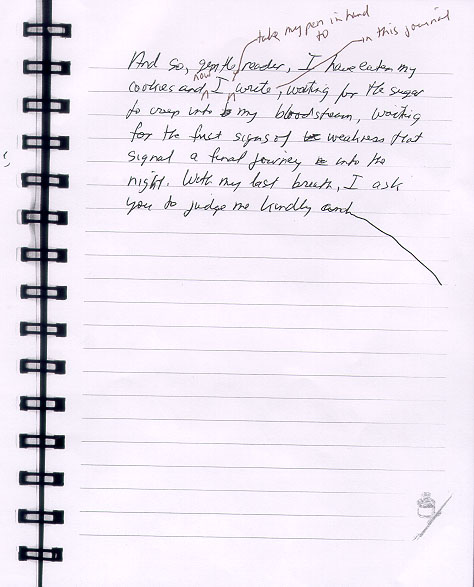 take my pen in hand
to
in this journal
And so, gentle reader, I have eaten my
now
cookies and I write, waiting for the sugar
to creep into my bloodstream, waiting
for the first signs of weakness that
signal a final journey into the
night. With my last breath, I ask
you to judge me kindly and